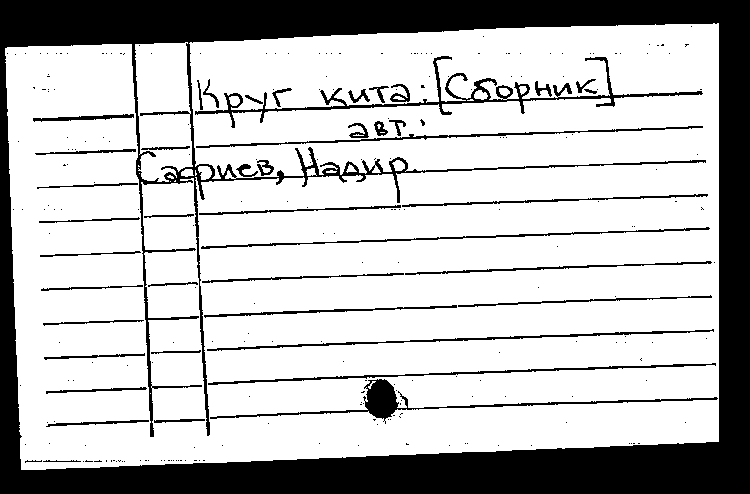 Круг кита: [Сборник]
авт.:
Сафиев, Надир.